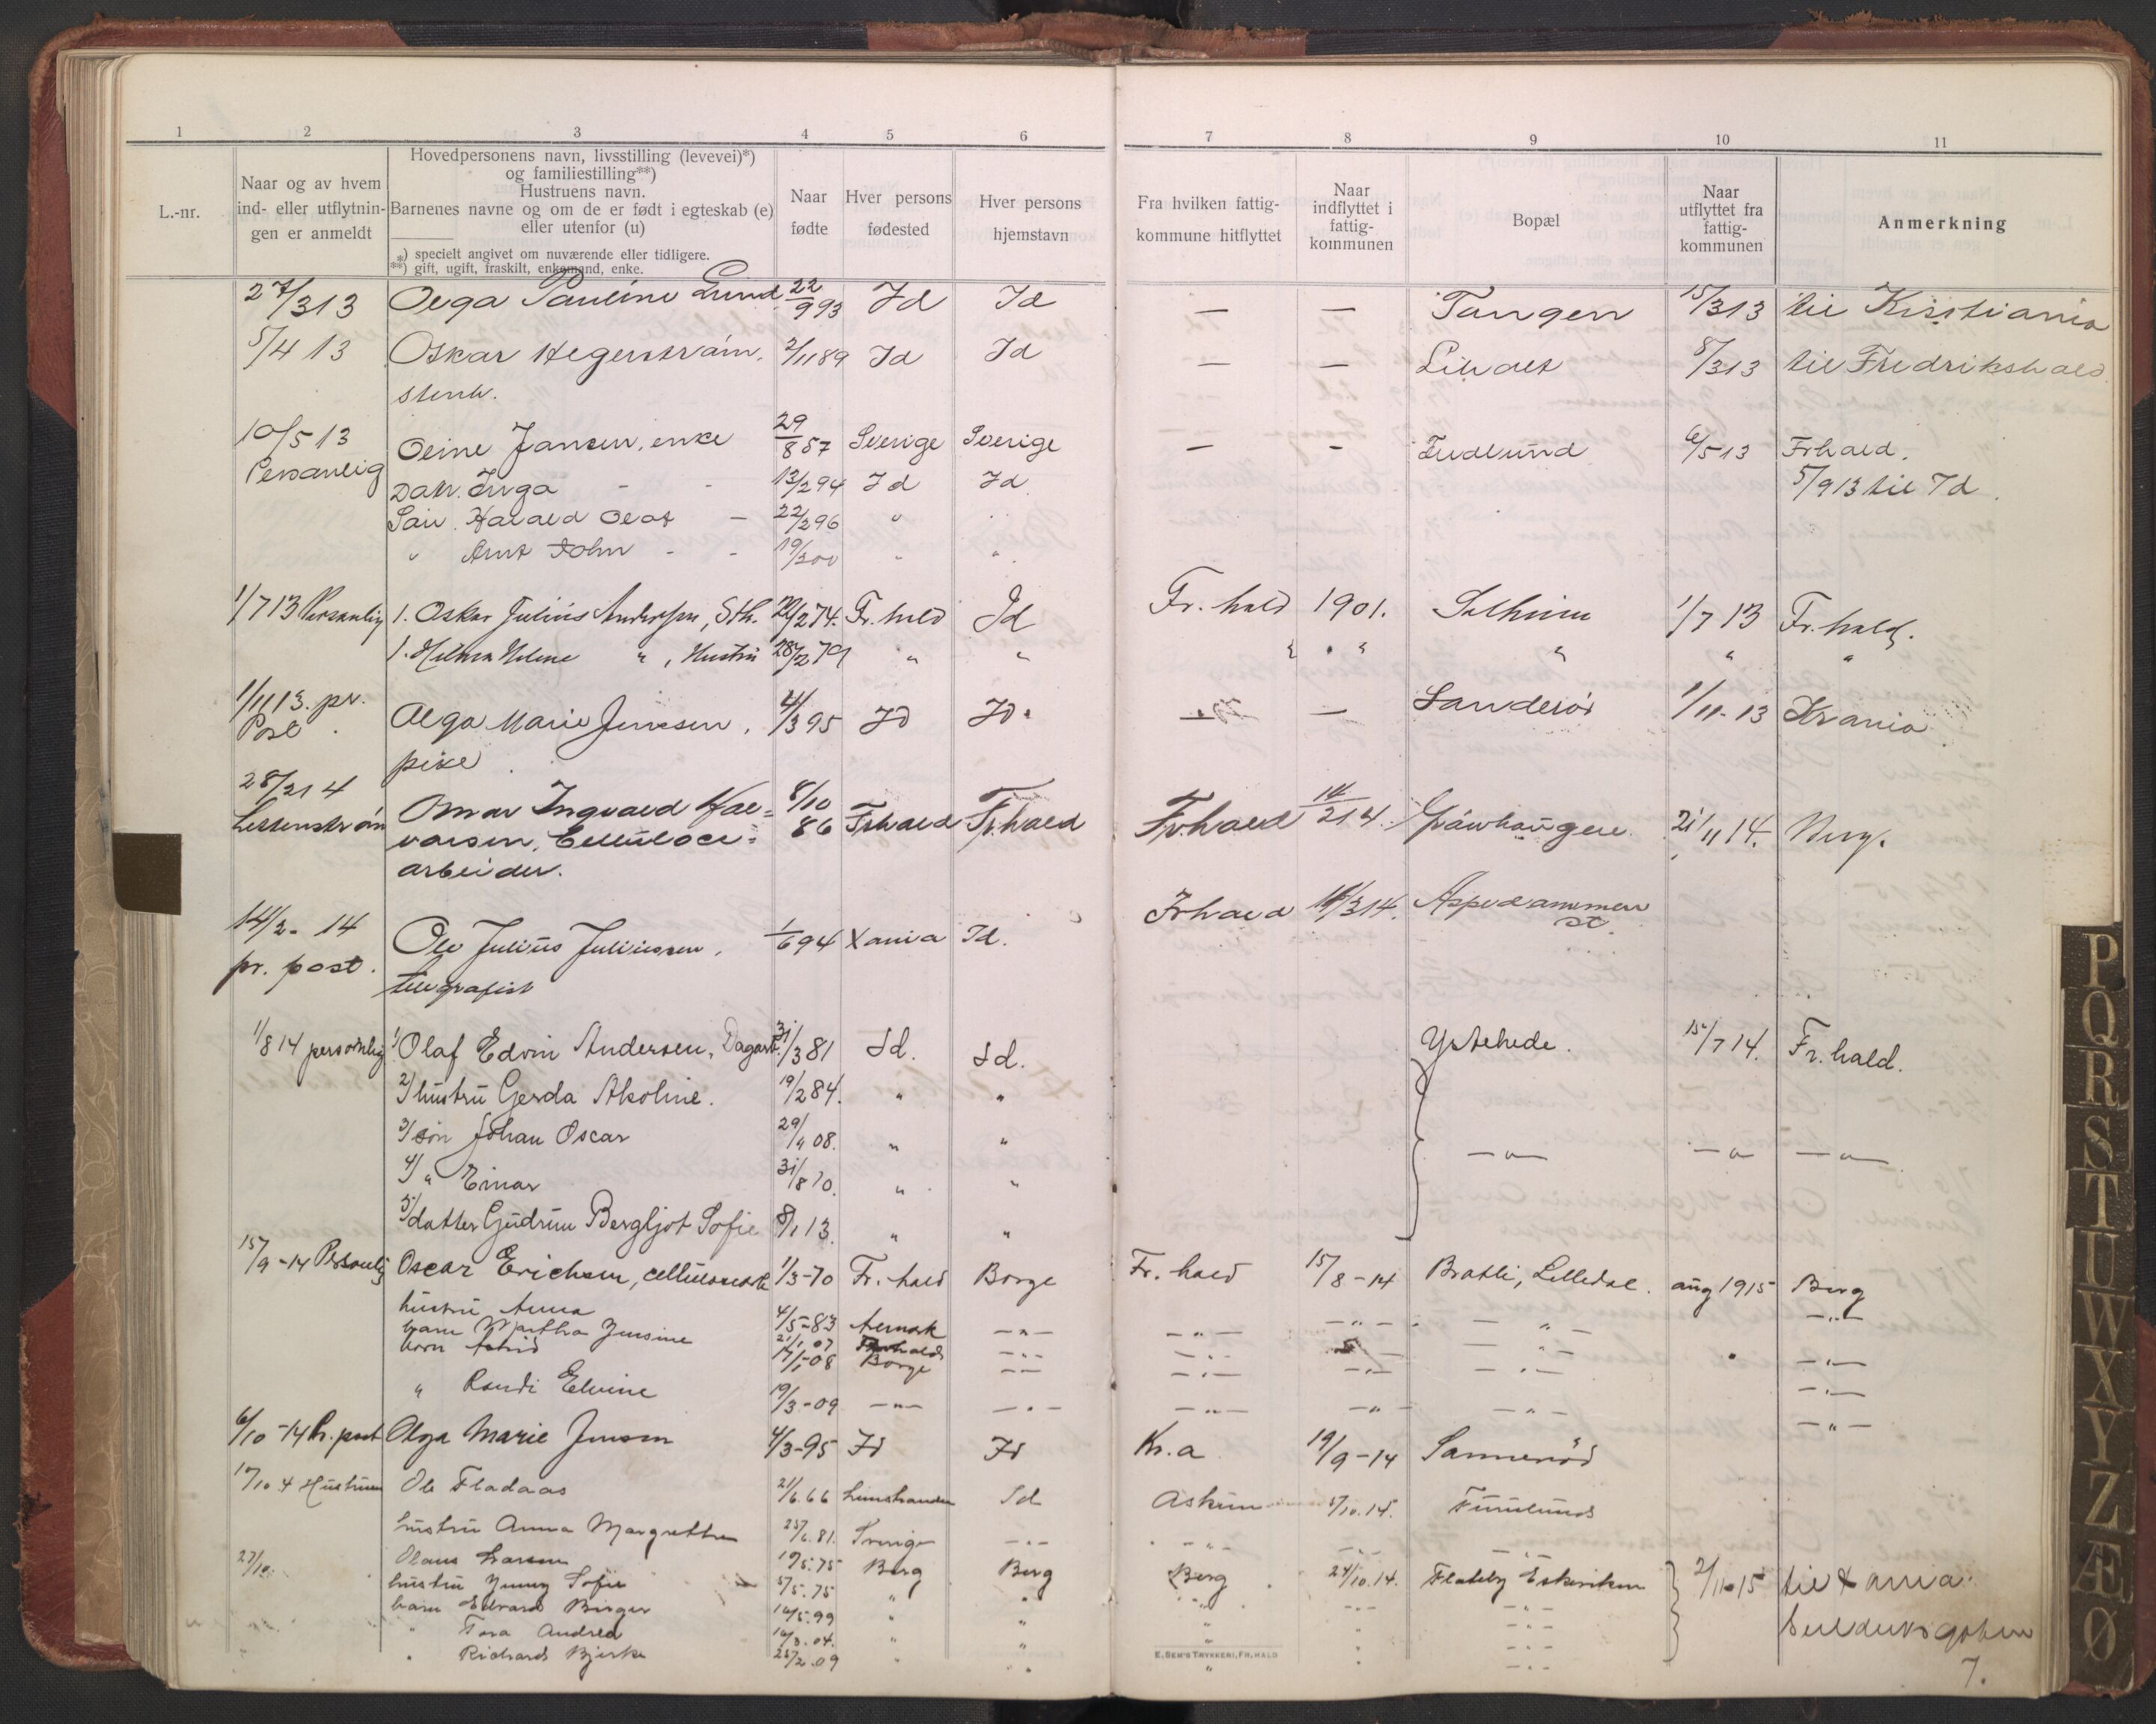 1 2 3 4 5 6 7 8 9 10 11
L.-nr.
Naar og av hvem
ind- eller utflytnin-
gen er anmeldt
Hovedpersonens navn, livsstilling (levevei)*)
og familiestilling**)
Hustruens navn.
Barnenes navne og om de er født i egteskab (e)
eller utenfor (u)
*) specielt angivet om nuværende eller tidligere.
**) gift, ugift, fraskilt, enkemand, enke.
Naar
fødte
Hver persons
fødested
Hver persons
hjemstavn
Fra hvilken fattig-
kommune hitflyttet
Naar
indflyttet i
fattig-
kommunen
Bopæl
Naar
utflyttet fra
fattig-
kommunen
Anmerkning
27/3 13 Olga Pauline Lund 22/9 93 Id Id — — Tangen 15/3 13 til Kristiania
5/4 13 Oskar Hegerstrøm, 2/11 89 Id Id — — Liholt 8/3 13 til Fredrikshald
stenh.
10/5 13 Oline Jansen, enke 29/8 57 Sverige Sverige — - 6/5 13 Frhald.
Personlig Datr. Inga - - 13/2 94 Id Id 5/9 13 til Id.
Søn Harald Olaf — 22/2 96 "
" Arnt John - - 19/3 00 " "
1/7 13 Personlig 1. Oskar Julius Anderssen, Sth. 2 74. Fr. hald Id Fr. hald 1901. Solheim 1/7 13 Fr. hald.
1. Hilma Helene " , Hustru 28/2 79 " " " " " " " "
1/11 13. pr. Olga Marie Jenssen, 4/3 95 Id Id. — Sanderød 1/11-13 Krania
Post. pike
28/2 14 Omar Ingvald Hal= 8/10 86 Frhald Fr.hald Fr.hald 14/2 14. 21/11 14. Berg.
varsen, Celluloce=
arbeider.
14/3 - 14 Ole Julius Juliussen, 1/6 94 Xania Id. Frhald 14/3 14. Aspedammen
pr. post. telegrafist st.
1/8 14 personlig 1/ Olaf Edvin Andersen, Dagarb. 31/3 81 Id. Id. Ystehede. 15/7 14. Fr. hald.
2/ hustru Gerda Akoline. 19/2 84. " "
3/ søn Johan Oscar 29/ 08. " " —"— —"— —"—
4/ " Einar 31/8 10. " "
5/ datter Gudrun Bergljot Sofie 8/1 13. " "
15/9 - 14 Personlig Oscar Erichsen, 1/3-70 Fr. hald Borge Fr. hald 15/8 - 14 Bratli, Lilledal. aug 1915 Berg
hustru Anna 4/5-83 Aremark —"— —"— —"— —"— —"—
barn Martha Jensine 21/1 07 Frhald —"— —"— — —"— —"—
barn Astrid 17/1-08 Borge —"— —"— —"— —"— —"—
" Randi Elvine 19/3-09 —"— —"— —"— —"— —"— —"—
6/10 -14 Pr. post Olga Marie Jensen 4/3-95 Id Id Kr.a 19/9 - 14 Sannerød
17/10 4 Hustruen Ole Fladaas 21/6.66 Id Askim 5/10.14. Furulund
hustru Anna Margrethe 25/ .81. Sverige —"— —"— —"— —"—
27/10. Olaus Larsen 19/5.75 Berg Berg Berg 24/10.14. Flateby 2/11 15 til Xania
hustru Jenny Sofie 5/5.75 " " " —"— —"—
barn Edvard Birger 14/5.99 " " " " —"—
" Tora Andrea 16/3.04. " " " " —"—
" Richard Bjerke 25/2.09 " " " " —"— 7.
E. SEM'S TRYKKERI, FR.HALD
P
Q
R
S
T
U
W
X
Y
Z
Æ
Ø